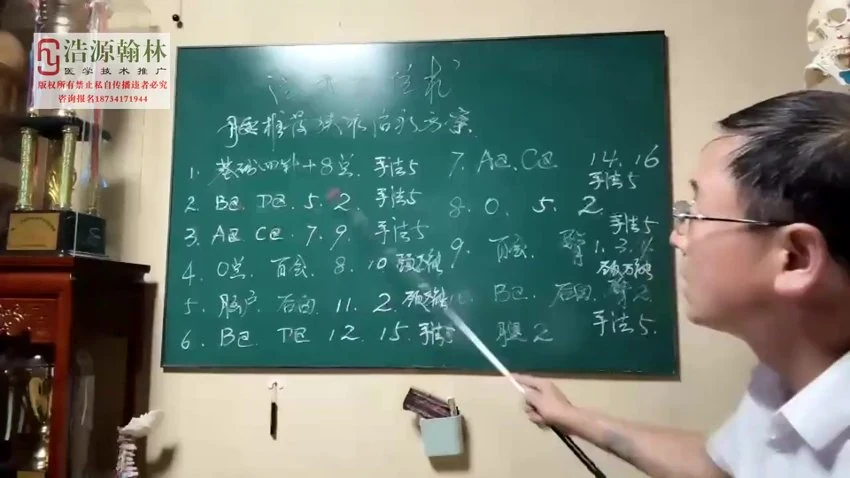 浩源翰林
医学技术推广
版权所有禁止私自传播违者必究
咨询报名18734171944
腰椎
治疗方案
1. 基础四针+8点. 手法5
2. B区 D区. 5. 2. 手法5
3. A区 C区. 7. 9. 手法5
4. 0点. 百会. 8. 10
5. 脑户. 后囟. 11. 2.
6. B区 D区 12. 15. 手法5
7. A区. C区. 14. 16
手法5
8. 0. 5. 2.
手法5
9. 百会. 1. 3.
B区. 后囟. 2
腿2 手法5.